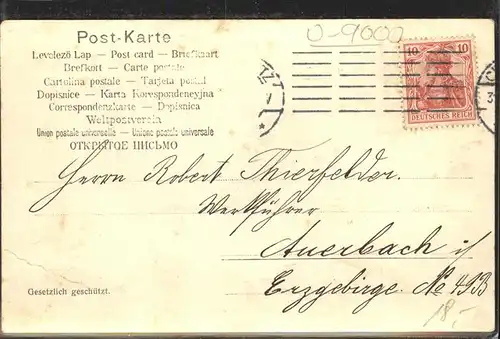 O-9000
Post-Karte
Levelező Lap — Post card — Briefkaart
Brefkort — Carte postale
Cartolina postale — Tarjeta postal
Dopisnice — Karta Korespondencyjna
Correspondenzkarte — Dopisnica
Weltpostverein
Union postale universelle — Unione postale universale
ОТКРЫТОЕ ПИСЬМО
10 10
DEUTSCHES REICH
Herrn Robert Thierfelder.
Werkführer
Auerbach i/
Erzgebirge. No 49B
Gesetzlich geschützt.
18,-